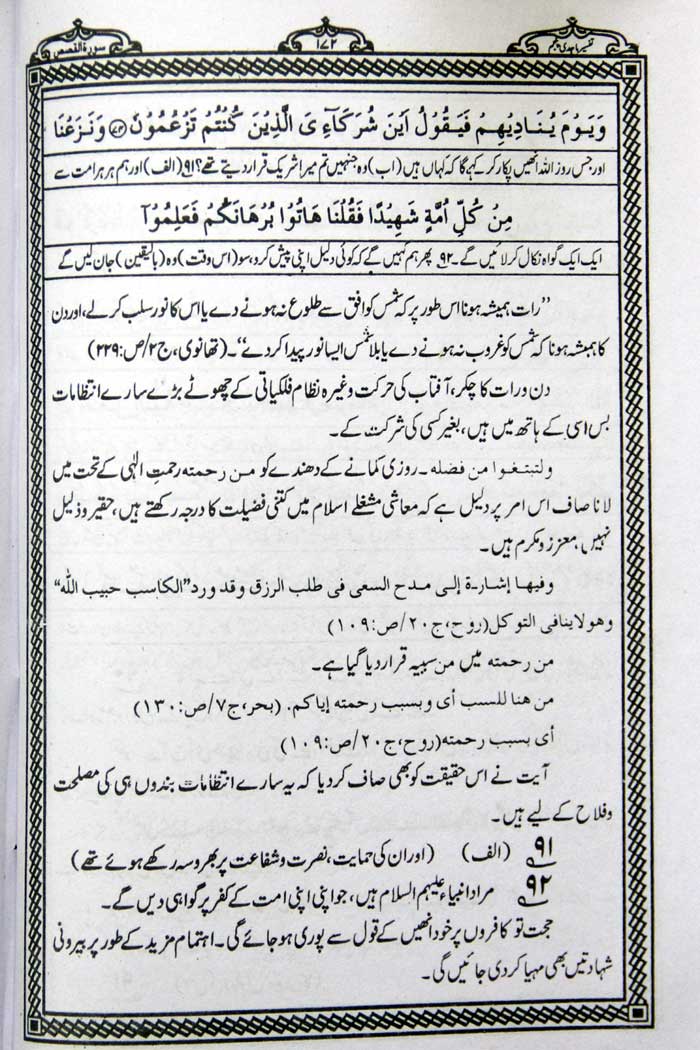 تفسیر ماجدی پنجم
۱۷۲
سورۃ القصص
وَيَوْمَ يُنَادِيهِمْ فَيَقُولُ أَيْنَ شُرَكَآءِ يَ الَّذِينَ كُنْتُمْ تَزْعُمُونَ ﴿۷۴﴾ وَنَزَعْنَا
اور جس روز اللہ انھیں پکار کر کہے گا کہ کہاں ہیں (اب) وہ جنہیں تم میرا شریک قرار دیتے تھے؟ ۹۱ (الف) اور ہم ہر ہر امت سے
مِنْ كُلِّ اُمَّةٍ شَهِيْدًا فَقُلْنَا هَاتُوا بُرْهَانَكُمْ فَعَلِمُوْآ
ایک ایک گواہ نکال کر لائیں گے۔ ۹۲ پھر ہم کہیں گے کہ کوئی دلیل اپنی پیش کرو، سو (اس وقت) وہ (بالیقین) جان لیں گے
’’رات ہمیشہ ہونا اس طور پر کہ شمس کو افق سے طلوع نہ ہونے دے یا اس کا نور سلب کر لے، اور دن
کا ہمیشہ ہونا کہ شمس کو غروب نہ ہونے دے یا بلا شمس ایسا نور پیدا کر دے‘‘۔ (تھانوی، ج۲/ص:۲۲۹)
دن و رات کا چکر، آفتاب کی حرکت وغیرہ نظام فلکیاتی کے چھوٹے بڑے سارے انتظامات
بس اسی کے ہاتھ میں ہیں، بغیر کسی کی شرکت کے۔
ولتبتغوا من فضله۔ روزی کمانے کے دھندے کو من رحمته رحمتِ الٰہی کے تحت میں
لانا صاف اس امر پر دلیل ہے کہ معاشی مشغلے اسلام میں کتنی فضیلت کا درجہ رکھتے ہیں، حقیر و ذلیل
نہیں، معزز و مکرم ہیں۔
وفيها إشارة إلى مدح السعى فى طلب الرزق وقد ورد”الكاسب حبيب الله“
وهو لاينافى التوكل (روح، ج۲۰/ص:۱۰۹)
من رحمته میں من سببیہ قرار دیا گیا ہے۔
من هنا للسبب أى وبسبب رحمته إياكم. (بحر، ج۷/ص:۱۳۰)
أى بسبب رحمته (روح، ج۲۰/ص:۱۰۹)
آیت نے اس حقیقت کو بھی صاف کر دیا کہ یہ سارے انتظامات بندوں ہی کی مصلحت
و فلاح کے لیے ہیں۔
۹۱ (الف) (اور ان کی حمایت، نصرت و شفاعت پر بھروسہ رکھے ہوئے تھے)
۹۲ مراد انبیاء علیہم السلام ہیں، جو اپنی اپنی امت کے کفر پر گواہی دیں گے۔
حجت تو کافروں پر خود انھیں کے قول سے پوری ہو جائے گی۔ اہتمام مزید کے طور پر بیرونی
شہادتیں بھی مہیا کر دی جائیں گی۔